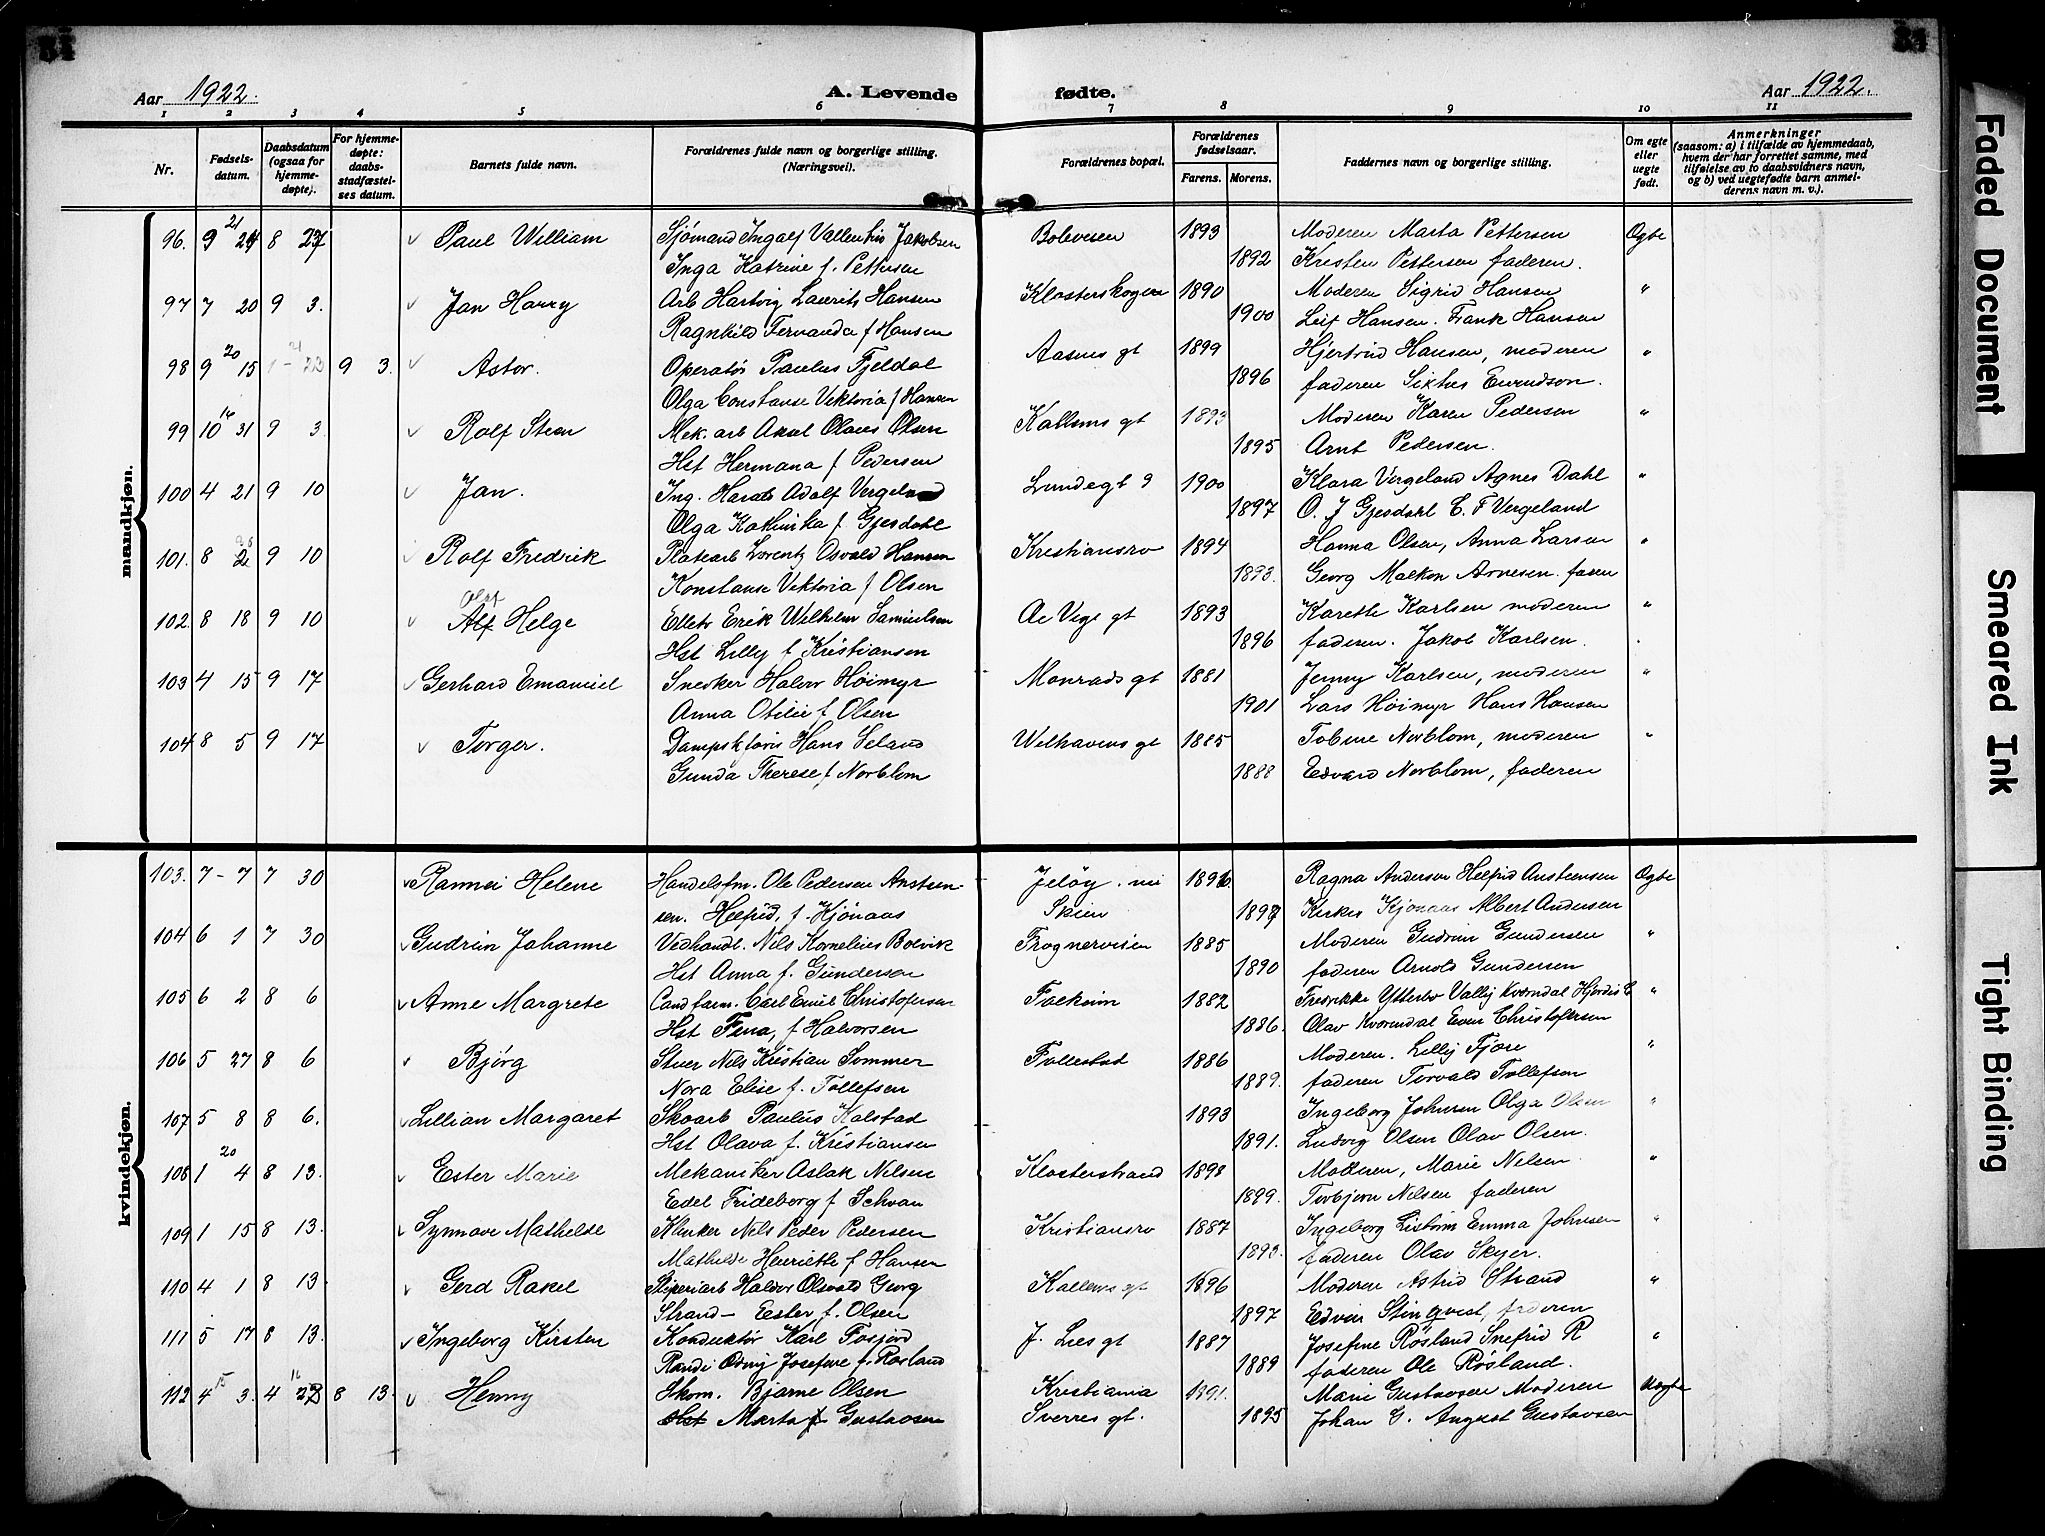 34
34
Aar 1922.
A. Levende fødte.
Aar 1922.
1 2 3 4 5 6 7 8 9 10 11
Nr.
Fødsels-
datum.
Daabsdatum
(ogsaa for
hjemme-
døpte).
For hjemme-
døpte:
daabs-
stadfæstel-
ses datum.
Barnets fulde navn.
Forældrenes fulde navn og borgerlige stilling.
(Næringsvei).
Forældrenes bopæl.
Forældrenes
fødselsaar.
Farens. Morens.
Faddernes navn og borgerlige stilling.
Om egte
eller
uegte
født.
Anmerkninger
(saasom: a) i tilfælde av hjemmedaab,
hvem der har forrettet samme, med
tilføielse av to daabsvidners navn,
og b) ved uegtefødte barn anmel-
derens navn m. v.).
mandkjøn.
96. 9 21 8 27 v Paul William Sjömand Ingolf Vallentin Jakobsen Bolevesen 1893 Moderen Marta Pettersen Ogte
Inga Katrine f. Pettersen 1892 Kristen Pettersen faderen.
97 7 20 9 3. v Jan Harry Arb Hartvig Laurits Hansen Klosterskogen 1890 Moderen Sigrid Hansen "
Ragnhild Fernanda f Hansen 1900 Leif Hansen. Frank Hansen
98 9 20 15 9 3. v Astor. Operatör Paulus Fjeldal Aasnes gt 1899 Hjertrud Hansen, moderen "
Olga Constanse Viktoria f Hansen 1896 faderen
99 10 16 31 9 3 v Rolf Steen Mek. arb Aksel Olaus Olsen Kallems gt 1893 Moderen Karen Pedersen "
Hst Hermana f Pedersen 1895 Arnt Pedersen.
100 4 21 9 10 v Jan. Ing. Harald Adolf Vergeland Lundegt 9 1900 Klara Vergeland Agnes Dahl "
Olga Kathinka f Gjesdahl 1897 O. J Gjesdahl C. F Vergeland
101. 8 9 10 Rolf Fredrik Platearb Lorentz Osvald Hansen Kristiansro 1894 Hanna Olsen, Anna Larsen "
Konstanse Viktoria f Olsen 1893. Georg Malkon Arnesen. faren
Olaf
102. 8 18 9 10 v Alf Helge Elletr Erik Wilhelm Samuelsen Ae Vege gt 1893 Karethe Karlsen moderen "
Hst Lilly f Kristiansen 1896 faderen. Jakob Karlsen.
103 4 15 9 17 v Gerhard Emanuel Snedker Halvor Höimyr Monrads gt 1881 Jenny Karlsen, moderen "
Anna Otilie f Olsen 1901 Lars Höimyr Hans Hansen
104 8 5 9 17 v Torger. Dampskföris Hans Seland Welhavens gt 1885 Tobine Norblom, moderen "
Gunda Therese f Norblom 1888 Edvard Norblom, faderen
kvindekjøn.
103. 7 - 7 7 30 v Rannei Helene Handelsfm. Ole Pedersen Austeen- Jelöy. 1896 Ragna Andersen Helfrid Austeensen Ogte
sen. Helfrid, f. Kjönaas Skien 1897 Kjönaas Albert Andersen
104 6 1 7 30 v Gudrun Johanne Vedhandl. Nils Kornelius Bolvik Frognerveien 1885 Moderen Gudrun Gundersen "
Hst Anna f. Gundersen 1890 faderen Arnold Gundersen
105 6 2 8 6 v Anne Margrete Cand farm. Carl Emil Christofersen Folkeim 1882 Fredrikke Ytterbö Vally Kværndal Hjördis C "
Hst Fena, f Halvorsen 1886. Olav Kværndal Even Christofersen
106 5 27 8 6 v Björg Stuer Nils Kristian Sommer Follestad 1886 Moderen. Lilly Fjære "
Nora Elise f. Tollefsen 1889. faderen Torvald Tollefsen
107 5 8 8 6. v Lillian Margaret Skoarb Paulus Kalstad 1893 Ingeborg Johnsen Olga Olsen "
Hst Olava f. Kristiansen 1891. Ludvig Olsen Olav Olsen.
108 1 20 4 8 13. v Ester Marie Mekaniker Aslak Nilsen Klosterstrand 1898 Moderen, Marie Nilsen "
Edel Frideborg f Schvan 1899. Torbjørn Nilsen faderen
109 1 15 8 13. v Synnøve Mathilde Klinker Nils Peder Pedersen Kristiansro 1887 Ingeborg Emma Johnsen "
Mathilde Henriette f Hansen 1893. faderen Olav Skyer.
110 4 1 8 13 v Gerd Rakel Haldor Olsvald Georg Kallems gt 1896 Moderen Astrid Strand "
Strand - Ester f. Olsen 1897 Edvin Stinqvist, faderen
111 5 17 8 13. v Ingeborg Kirsten Konduktör Karl Fosjord J. Lies gt 1887 Josefine Rösland Snefrid R "
Randi Odny Josefine f. Rosland 1889 faderen Ole Rösland.
112 4 15 3. 4 16 8 13. v Henny Skom. Bjarne Olsen Kristiania 1891. Marie Gustavsen Moderen Uegte
Hst Marta f Gustavsen Sverres gt. 1895 Johan G. August Gustavsen
Faded Document
Smeared Ink
Tight Binding